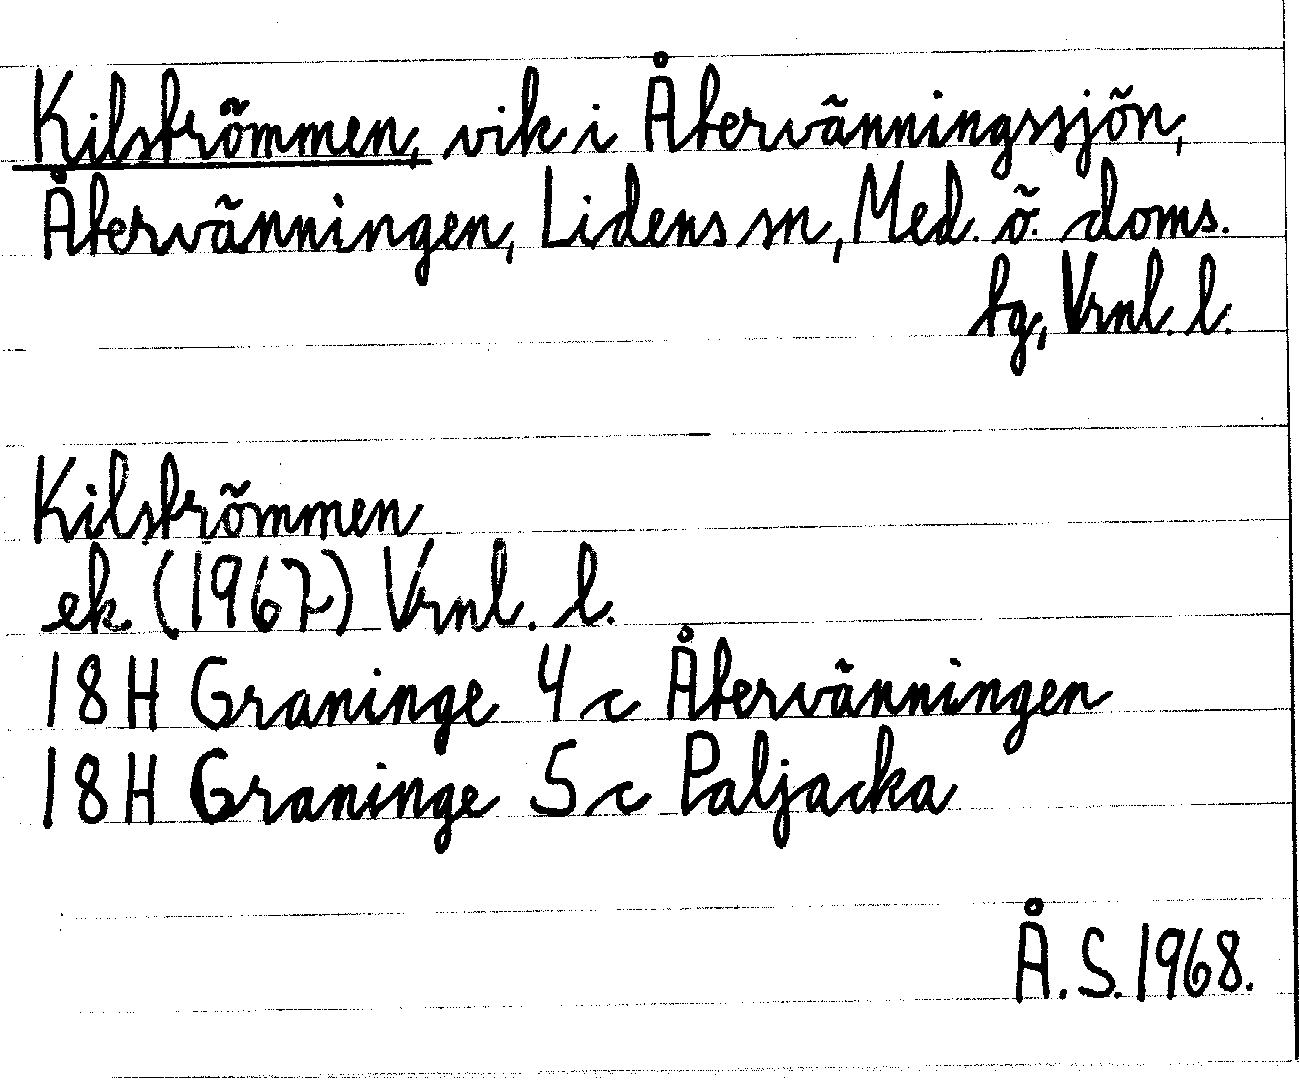 Kilströmmen, vik i Återvänningssjön,
Återvänningen, Lidens sn, Med. ö. doms.
tg, Vrnl. l.
Kilströmmen
ek (1967) Vrnl. l.
18H Graninge 4 c Återvänningen
18H Graninge 5 c Paljacka
Å. S. 1968.